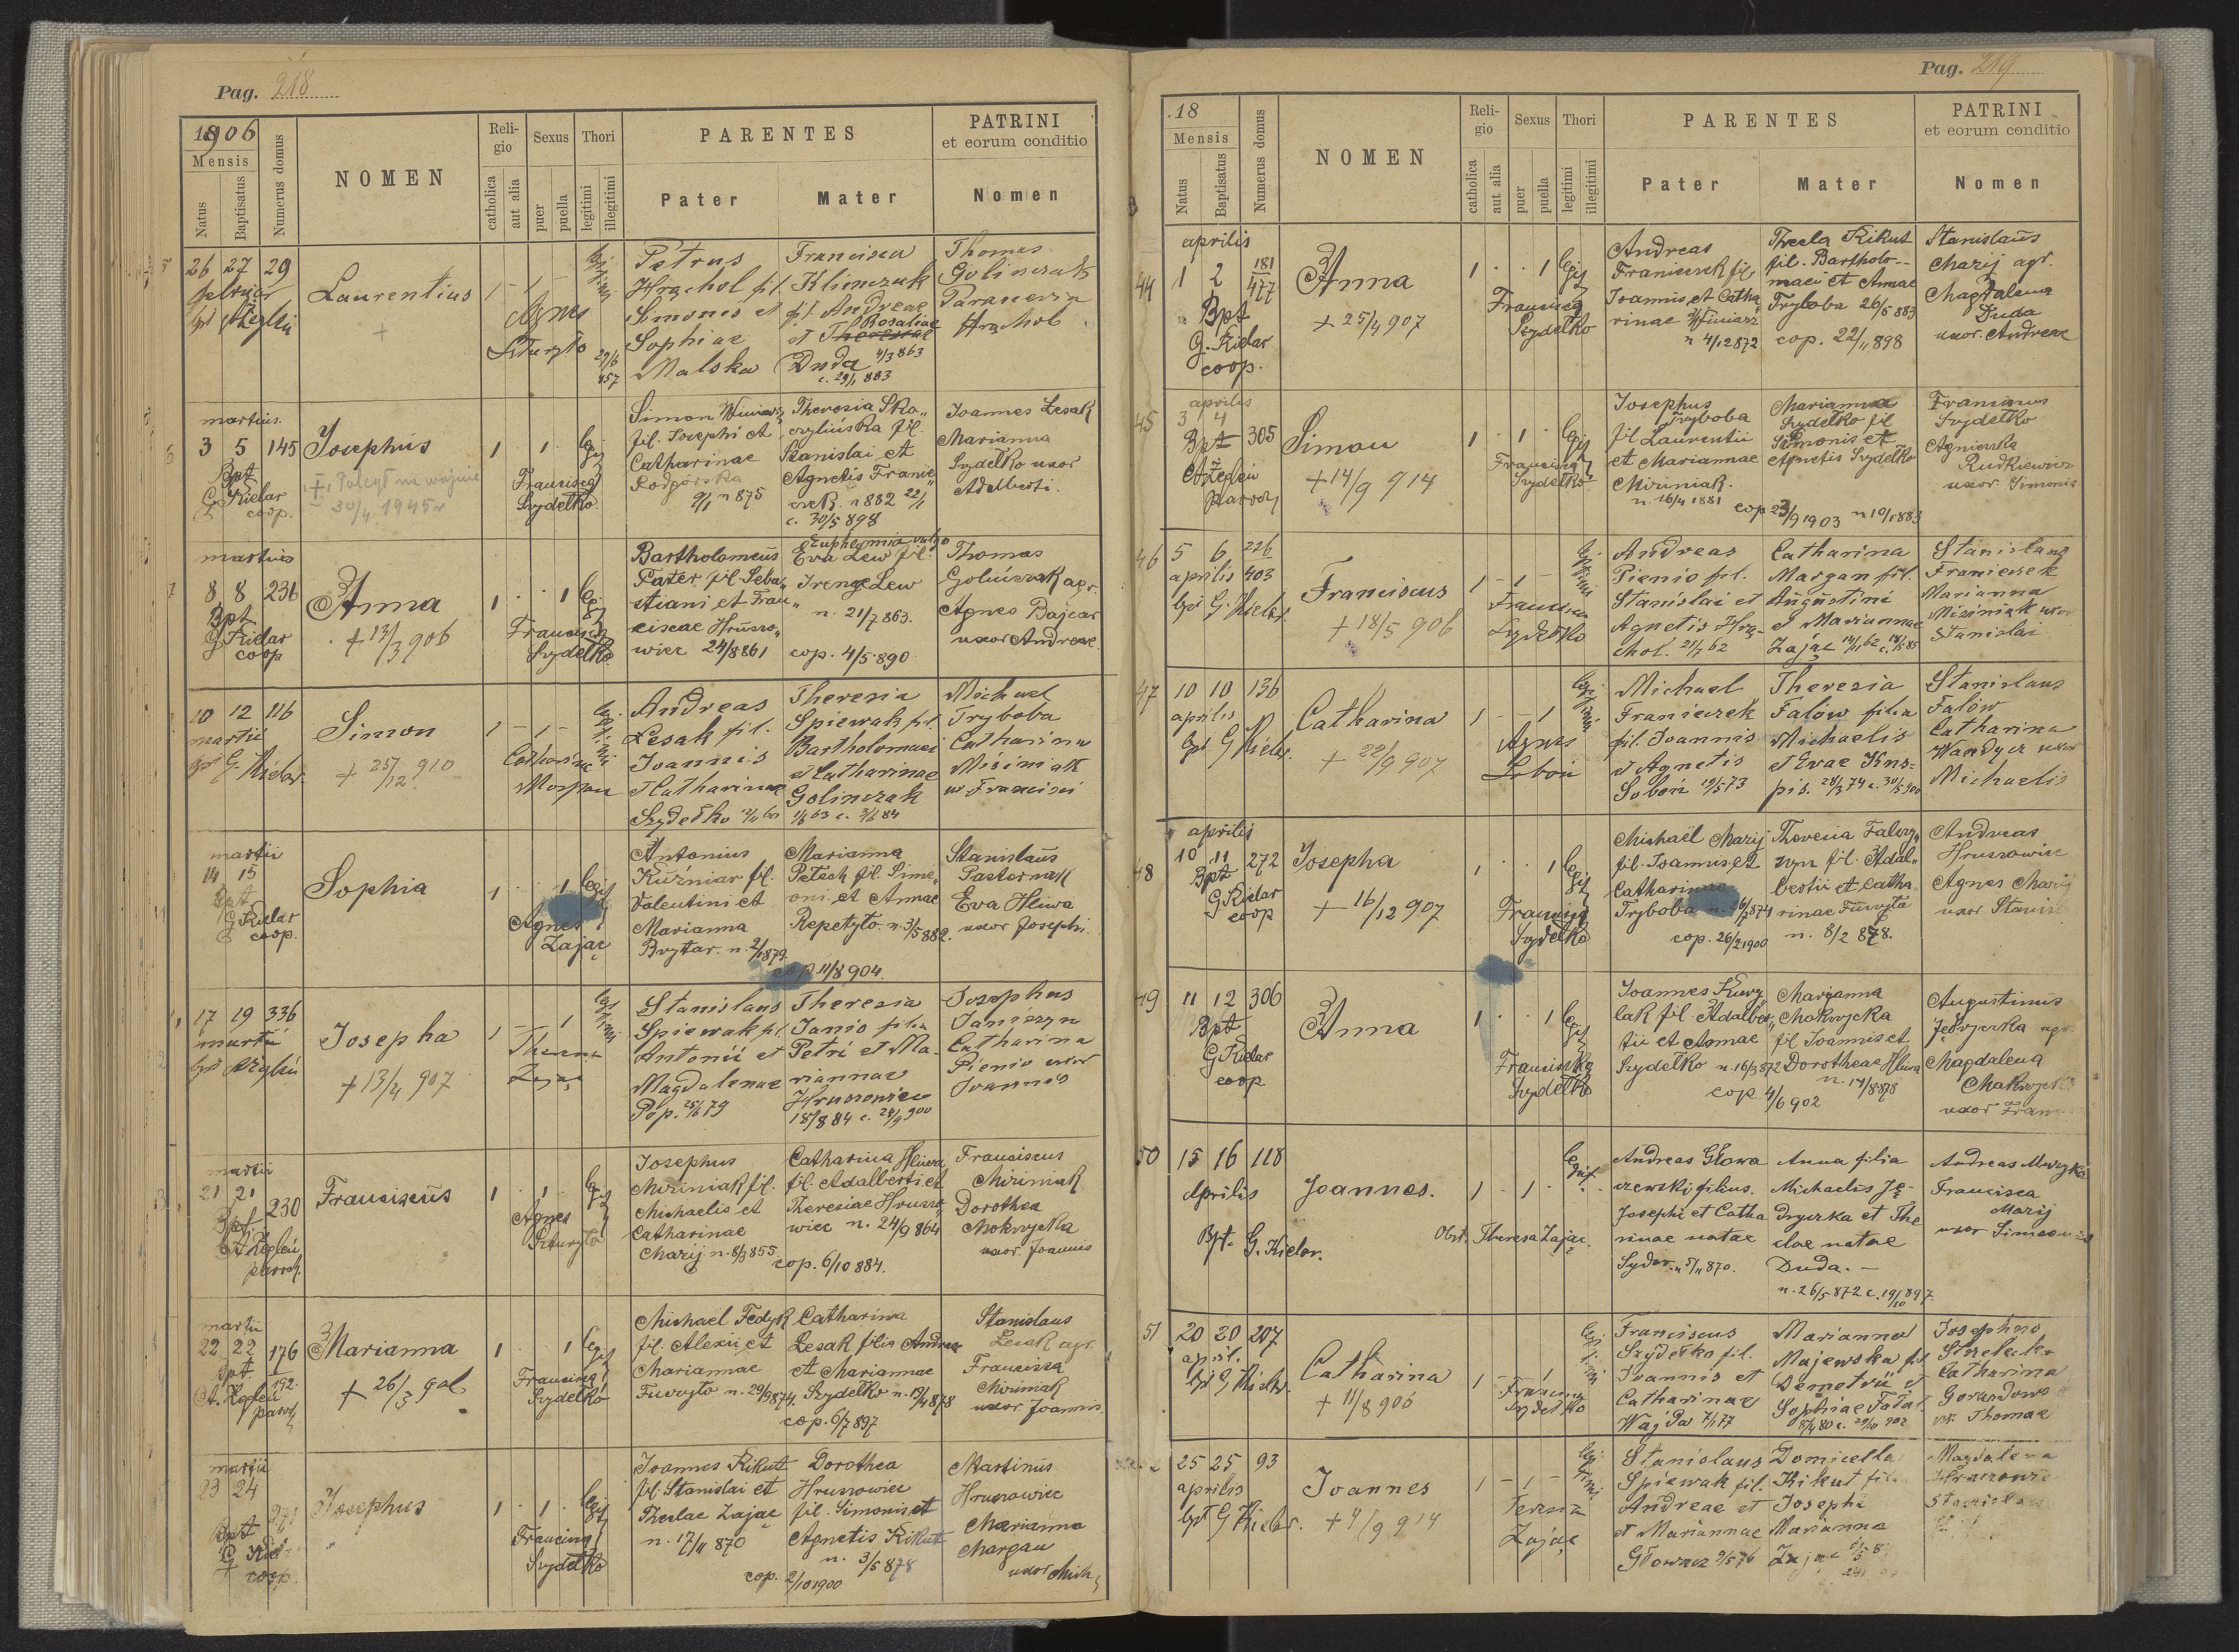 Pag. 218
1906
Mensis
Natus
Baptisatus
Numerus domus
NOMEN
Religio
catholica
aut alia
Sexus
puer
puella
Thori
legitimi
illegitimi
PARENTES
Pater
Mater
PATRINI
et eorum conditio
Nomen
26 27 29
Laurentius
+
Agnes
Petrus
Hrachol fil.
Simonis et
Sophiae
Malska
29/6
857
Francisca
Klimczak
fil. Andreae
Rosaliae
et Theresiae
Duda 4/3 863
c. 29/1 883
Thomas
Golinczak
Parascevia
Hrachol
martius
3 5 145
Bpt
G Kielar
coop.
Josephus
+ Poległ na wojnie
30/4 1945 r
1 1 legit
Francisca
Szydełko
Simon Winiarz
fil. Josephi et
Catharinae
Podgórska
9/1 n 875
Theresia Sko„
fil.
Stanislai et
Agnetis Franie„
czek. n 882 22/1
c. 30/5 898
Joannes Lesak
Marianna
Szydełko uxor
Adalberti.
martius
8 8 236
Bpt
G Kielar
coop
Anna
+ 13/3 906
1 1 legit
Francisca
Szydełko
Bartholomeus
Pater fil. Seba„
stiani et Fran„
ciscae Hruszo„
wiec 24/8 861
Euphemia vulgo
Eva Lew fil.
Irenae Lew
n. 21/7 863.
cop. 4/5 890
Thomas
Golinczak agr.
Agnes Bajcar
uxor Andreae.
10 12 116
martii
bpt G. Kielar.
Simon
+ 25/12 910
1 - 1 - legitimi
Catharina
Andreas
Lesak fil.
Joannis
et Catharinae
Szydełko
Theresia
Spiewak fil.
Bartholomaei
et Catharinae
Golinczak
1/6 63 c. 3/6 84
Michael
Tryboba
Catharina
Misiniak
ux Francisci
martii
14 15
Bpt
G Kielar
coop.
Sophia
1 1 legit
Agnes
Zając
Antonius
Kuźniar fil.
Valentini et
Marianna
Brytar. n. 2/1 879.
Marianna
Petech fil. Sime„
oni et Annae
Repetyło. n. 3/5 882.
cop 11/8 904.
Stanislaus
Pastornak
Eva Hliwa
uxor Josephi.
17 19 336
martii
Josepha
+ 13/4 907
1 - 1 legitimi
Theresa
Zając
Stanislaus
Spiewak fil.
Antonii et
Magdalenae
Pop. 25/6 79
Theresia
Janio filia
Petri et Ma-
riannae
Hruszowiec
18/8 84 c. 24/9 900
Josephus
Janiszyn
Catharina
Pienio uxor
Joannis
martii
21 21 230
Bpt
paroch.
Franciscus
1 1 legit
Agnes
Josephus
Misiniak fil.
Michaelis et
Catharinae
Marij n. 8/3 855.
Catharina Hliwa
fil. Adalberti et
Theresiae Hruszo„
wiec n. 24/9 864
cop. 6/10 884.
Franciscus
Misiniak
Dorothea
Mokrzycka
uxor Joannis
martii
22 22 176
Bpt 192.
Marianna
+ 26/3 906
1 1 legit
Francisca
Szydełko
Michael Fedyk
fil. Alexii et
Mariannae
Fuczyło n. 29/9 874.
Catharina
Lesak filia Andreae
et Mariannae
Szydełko n. 19/4 878
cop. 6/7 897
Stanislaus
Lesak agr.
Francisca
Misiniak
uxor Joannis.
martii
23 24
Bpt
coop.
Josephus
1 1 legit
Francisca
Szydełko
Joannes Kikut
fil. Stanislai et
Theclae Zając
n. 17/11 870
Dorothea
Hruszowiec
fil. Simonis et
Agnetis Kikut
n. 3/5 878
cop. 2/10 1900
Martinus
Hruszowiec
Marianna
Margan
uxor Mich
Pag. 219
18
Mensis
Natus
Baptisatus
Numerus domus
NOMEN
Religio
catholica
aut alia
Sexus
puer
puella
Thori
legitimi
illegitimi
PARENTES
Pater
Mater
PATRINI
et eorum conditio
Nomen
aprilis
44 1 2 181
477
Bpt
G. Kielar
coop.
Anna
+ 25/4 907
1 1 legit
Francisca
Szydełko
Andreas
Franiczek fil.
Joannis et Catha„
rinae Winiarz
n 4/12 872
Thecla Kikut
fil. Bartholo--
maei et Annae
Tryboba 26/5 883
cop. 22/11 898
Stanislaus
Marij agr.
Magdalena
Duda
uxor Andreae
aprilis
45 3 4 305
Bpt
Simon
+ 14/9 914
1 1 legit
Francisca
Szydełko
Josephus
Tryboba
fil Laurentii
et Mariannae
Misiniak.
n. 16/4 1881
Marianna
Szydełko fil
Simonis et
Agnetis Szydełko
cop 23/9 1903 n 10/1 883
Franciscus
Szydełko
Agnieszka
Rudkiewicz
uxor Simonis
46 5 6 226
aprilis 403
bpt G. Kielar.
Franciscus
+ 18/5 906
1 - 1 - legitimi
Francisca
Szydełko
Andreas
Pienio fil.
Stanislai et
Agnetis Hra-
chol. 21/7 62
Catharina
Margan fil.
Augustini
et Mariannae
Zając 14/11 62 c.
Stanislaus
Franiczek
Marianna
Misiniak uxor
Stanislai
47 10 10 136
aprilis
bpt G Kielar.
Catharina
+ 22/9 907
1 - 1 legitimi
Agnes
Soboń
Michael
Franiczek
fil. Joannis
et Agnetis
Soboń 19/5 73
Theresia
Falow filia
Michaelis
et Evae Kus-
piś. 28/3 74 c. 30/5 900
Stanislaus
Falow
Catharina
Wandycz uxor
Michaelis
aprilis
48 10 11 272
Bpt
G Kielar
coop
Josepha
+ 16/12 907
1 1 legit
Francisca
Szydełko
Michael Marij
fil. Joannis et
Catharinae
Tryboba n. 26/7 874
cop. 26/2 1900
Theresia Falę„
fil. Adal„
berti et Catha„
rinae Fuczyła
n. 8/2 878.
Andreas
Hruszowiec
Agnes Marij
uxor Stanisl
49 11 12 306
Bpt
G Kielar
coop
Anna
1 1 legit
Franciszka
Szydełko
Joannes Kury„
lak fil. Adalber„
tii et Annae
Szydełko n. 16/3 872
cop 4/6 902
Marianna
Mokrzycka
fil Joannis et
Dorotheae Hliwa
n. 14/8 878
Augustinus
Jędryczka agr.
Magdalena
Mokrzycka
uxor Fran
50 15 16 118
Aprilis
Bpt. G. Kielar.
Joannes.
1 . 1 . legit.
Obst. Theresa Zając.
Andreas Głowa
czewski filius.
Josephi et Catha
rinae natae
Sydor. n 5/11 870.
Anna filia
Michaelis Ję-
dryczka et The
clae natae
Duda. -
n. 26/5 872 c. 19/10 897.
Andreas Muzyka
Francisca
Marij
uxor Simeonis
51 20 20 207
april.
bpt G Kielar.
Catharina
+ 11/8 906
1 - 1 legitimi
Francisca
Szydełko
Franciscus
Szydełko fil.
Joannis et
Catharinae
Wajda 7/1 77
Marianna
Majewska fil
Demetrii et
Sophiae
Josephus
Catharina
ux. Thomae
25 25 93
aprilis
bpt G Kielar.
Joannes
+ 4/9 914
1 - 1 - legitimi
Teresa
Zając
Stanislaus
Spiewak fil.
Andreae et
et Mariannae
Głowacz 9/5 76
Domicella
Kikut filia
Josephi
Marianna
Zając
Magdalena
Hruszowiec